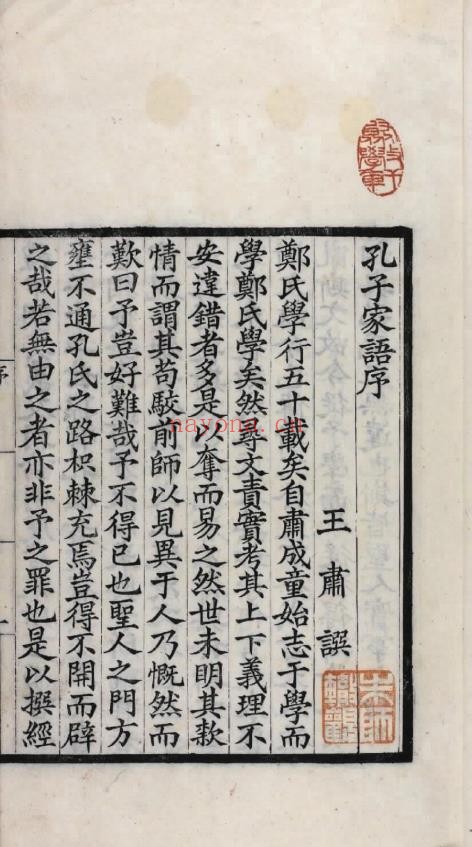 孔子家語序
王肅譔
鄭氏學行五十載矣自肅成童始志于學而
學鄭氏學矣然尋文責實考其上下義理不
安違錯者多是以奪而易之然世未明其款
情而謂其苟駮前師以見異于人乃慨然而
歎曰予豈好難哉予不得已也聖人之門方
壅不通孔氏之路枳棘充焉豈得不開而辟
之哉若無由之者亦非予之罪也是以撰經
序
nayona.cn